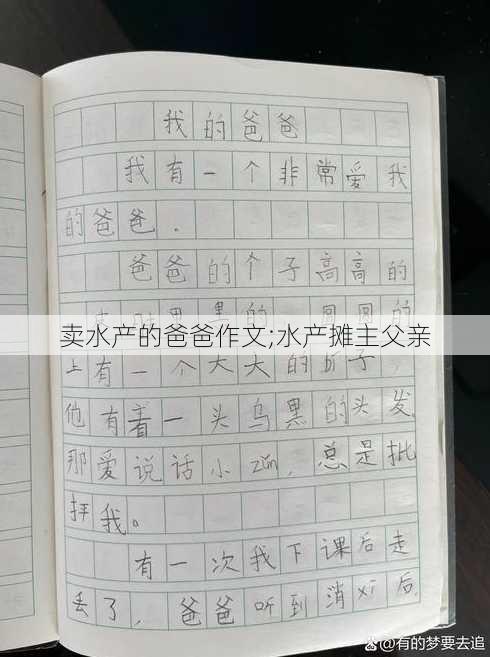 我的爸爸
我有一个非常爱我
的爸爸.
爸爸的个子高高的
卖水产的爸爸作文;水产摊主父亲
上有一个大大的
他有着一头乌黑的头发
那爱说话小zuǐ,总是批
拝我。
有一次我下课后走
丢了,爸爸听到消xi后,
@有的梦要去追